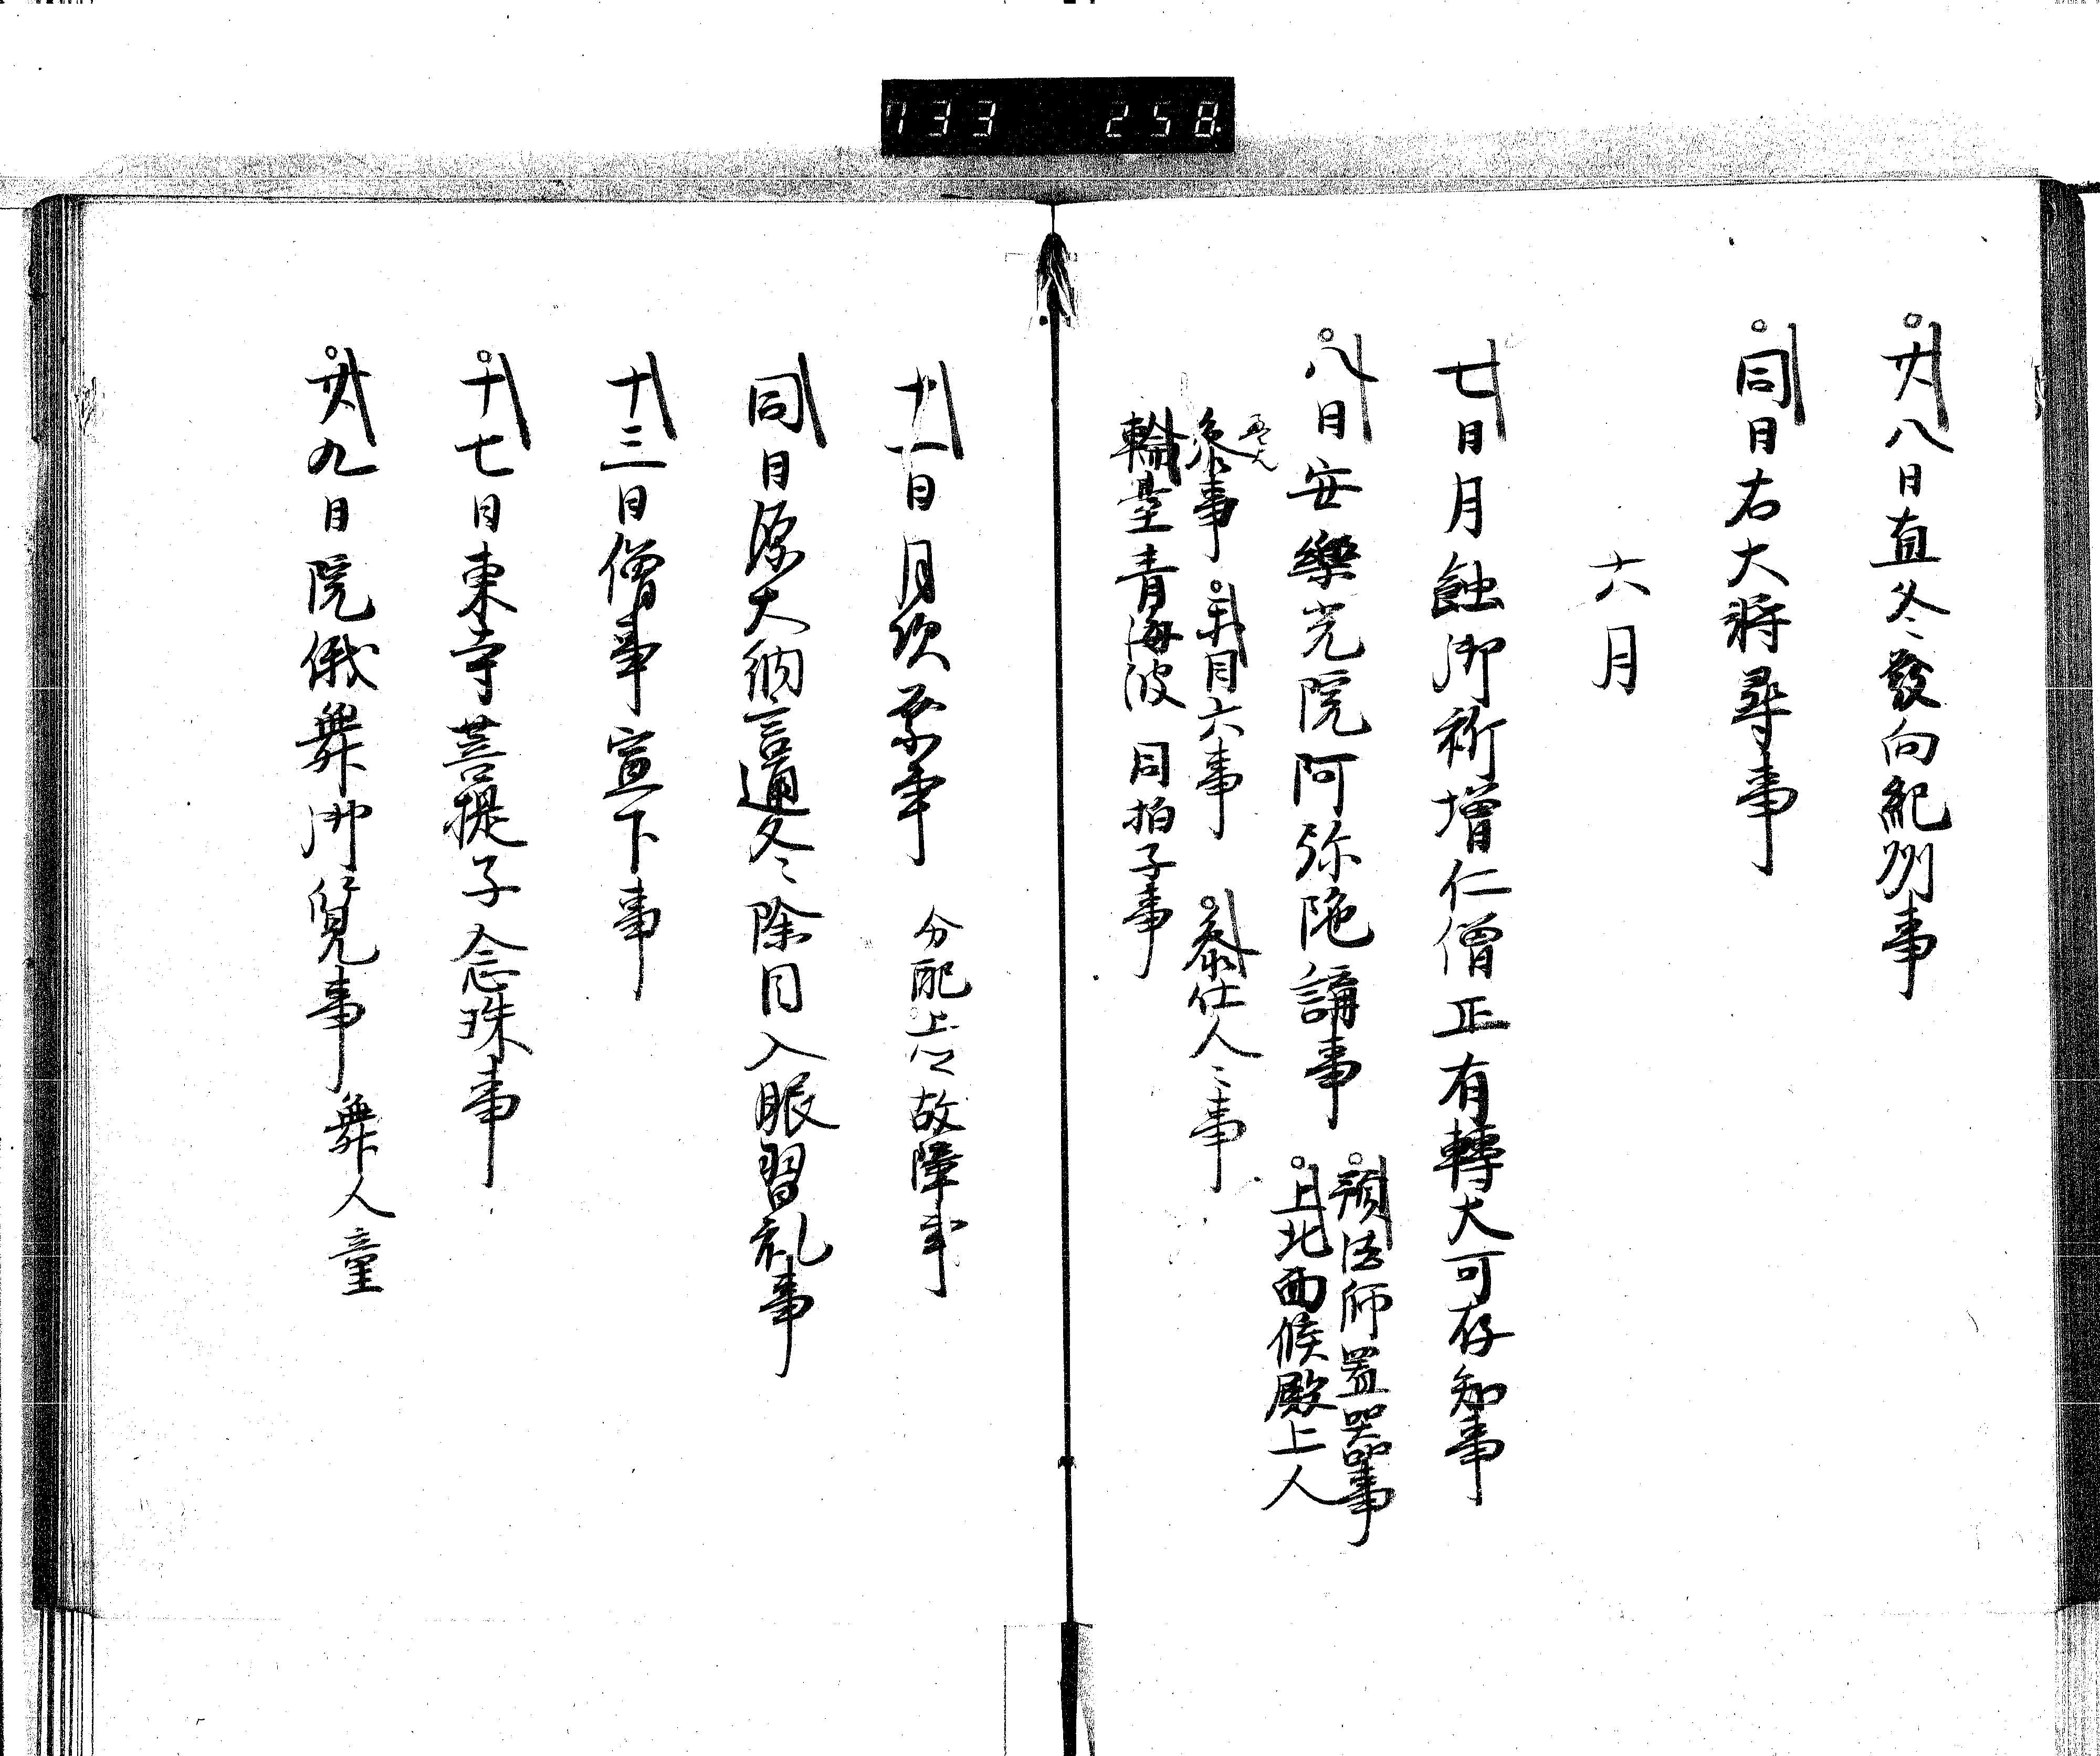 733 258
廿八日直冬發向紀州事
同日右大将尋事
六月
七日月蝕御祈増仁僧正有轉大可存知事
八日安樂光院阿弥陁講事
預法師置器事
上北面候殿上人
參事 六事 參仕人々事
輪臺青海波 同拍子事
十一日月次祭事 分配上卿故障事
同日源大納言通冬々除目入眼習礼事
十三日僧事宣下事
十七日東寺菩提子念珠事
廿九日院俄舞御覧事 舞人童